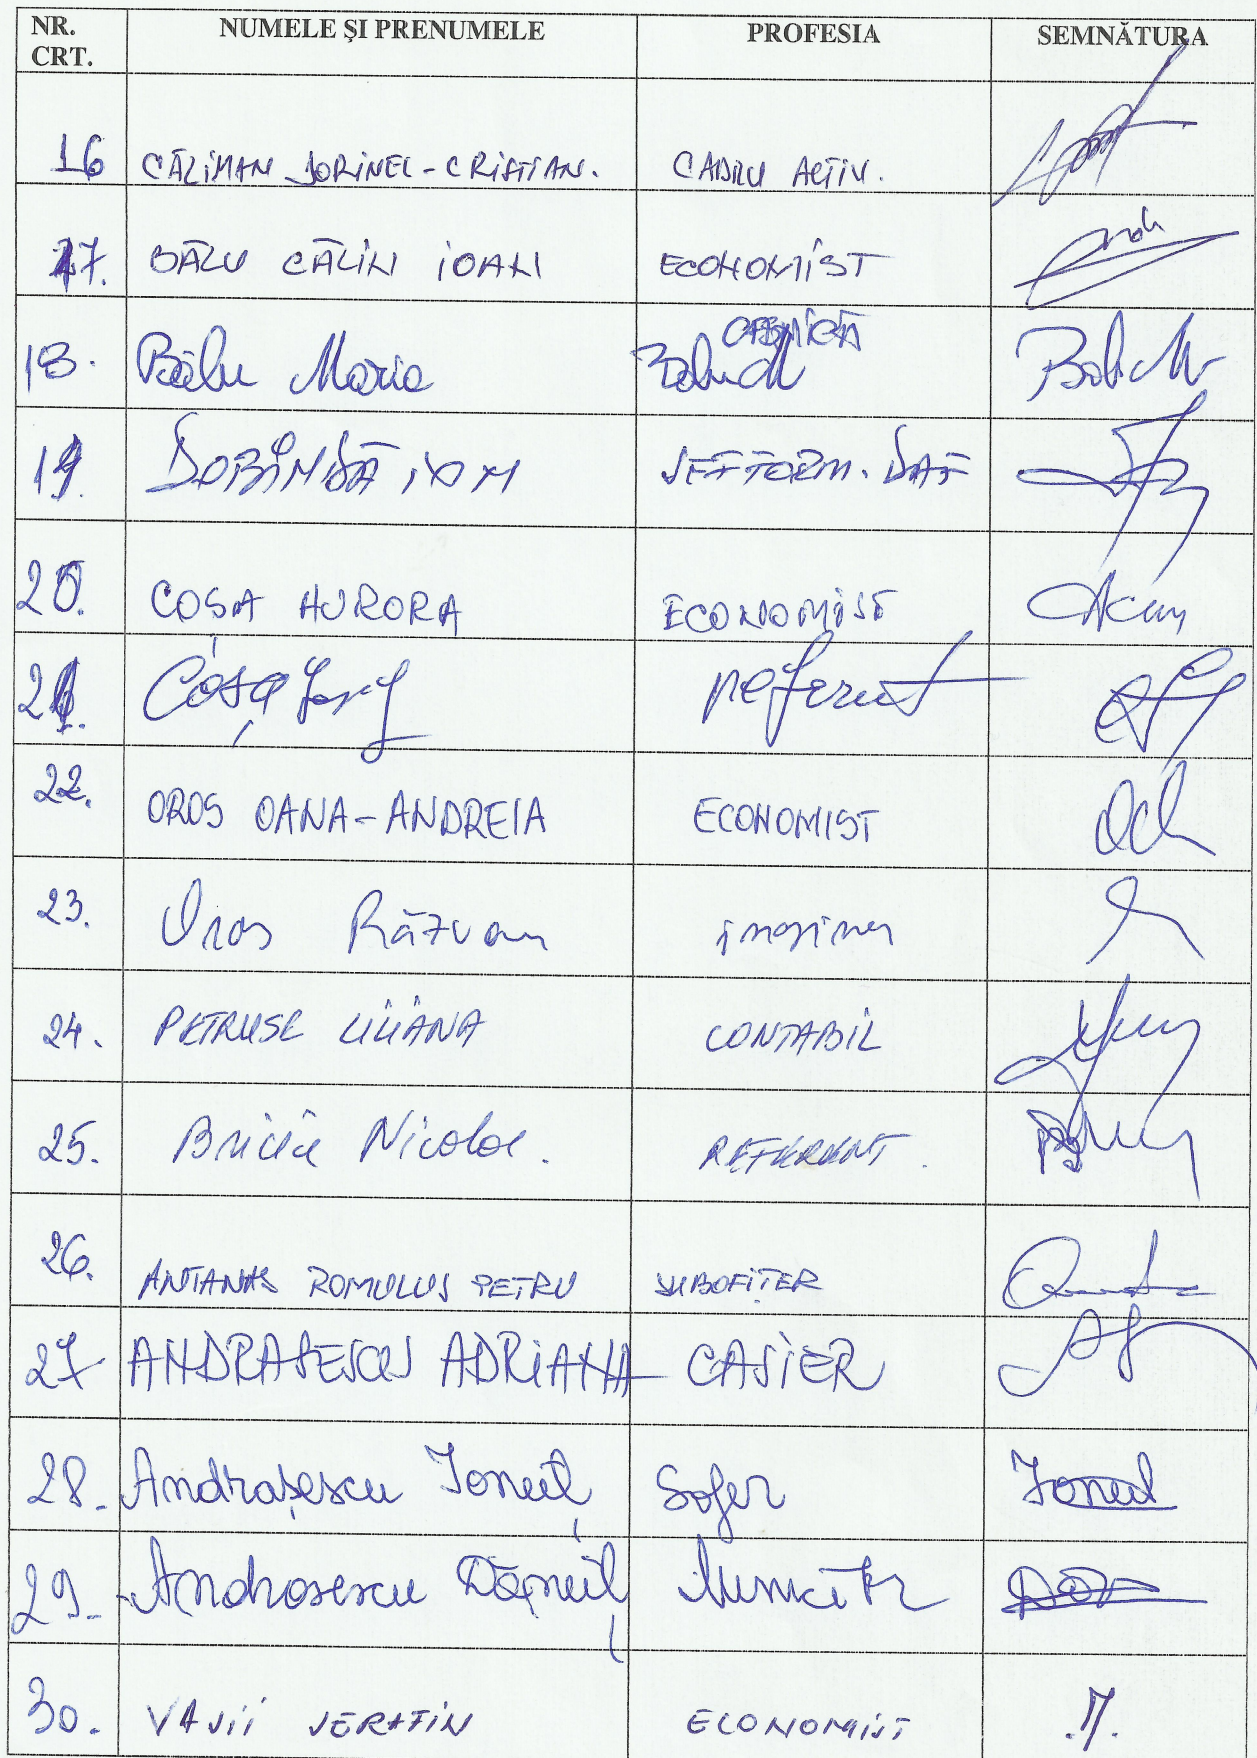 NR. CRT. NUMELE ȘI PRENUMELE PROFESIA SEMNĂTURA
16 CĂLIMAN SORINEL-CRISTIAN. CADRU ACTIV.
17. BĂLU CĂLIN IOAN ECONOMIST
18. Bălu Maria CASNICĂ
19. DOBÎNDĂ ION ȘEF FORM. DAF
20. COSA AURORA ECONOMIST
21. Coșa referent
22. OROS OANA-ANDREIA ECONOMIST
23. Oros Răzvan inginer
24. PETRUSE LILIANA CONTABIL
25. Nicolae. REFERENT.
26. ANTANAS ROMULUS PETRU SUBOFIȚER
27 ANDRASESCU ADRIANA CASIER
28. Andrașescu Ionuț Sofer Ionut
29. Andrasescu Dănuț Muncitor
30. VASII SERAFIN ECONOMIST